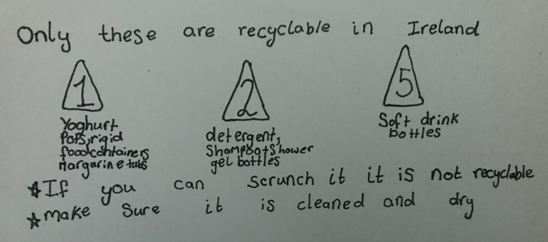 Only these are recyclable in Ireland
1 2 5
Yoghurt
Pots, rigid
food containers
Margarine tubs
detergent,
Shampoo & Shower
gel bottles
Soft drink
bottles
★ If you can scrunch it it is not recyclable
★ make Sure it is cleaned and dry